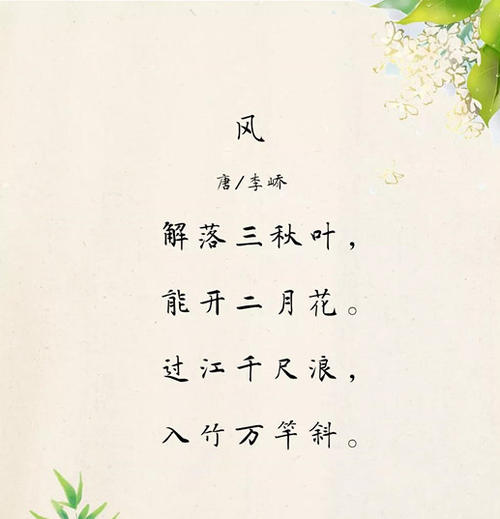 风
唐/李峤
解落三秋叶，
能开二月花。
过江千尺浪，
入竹万竿斜。